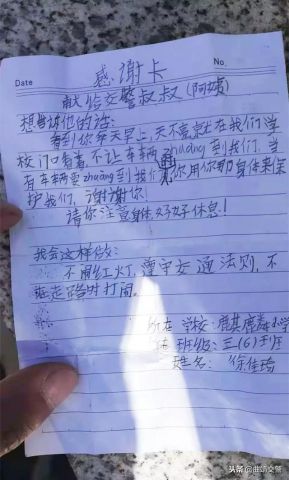 感谢卡
Date
No.
献给交警叔叔(阿姨)
想对你他的话:
看到你每天早上,天不亮就在我们学
校门口看着,不让车辆zhuàng到我们,当
有车辆要zhuàng到我们,你用你的身体来保
护我们,谢谢你!
请你注意身体,好好休息!
我会这样做:
不闯红灯,遵守交通法则,不
在走路时打闹。
所在学校:鹿其席麟小学
班级:三(6)班
姓名:徐佳琦
头条 @曲靖交警